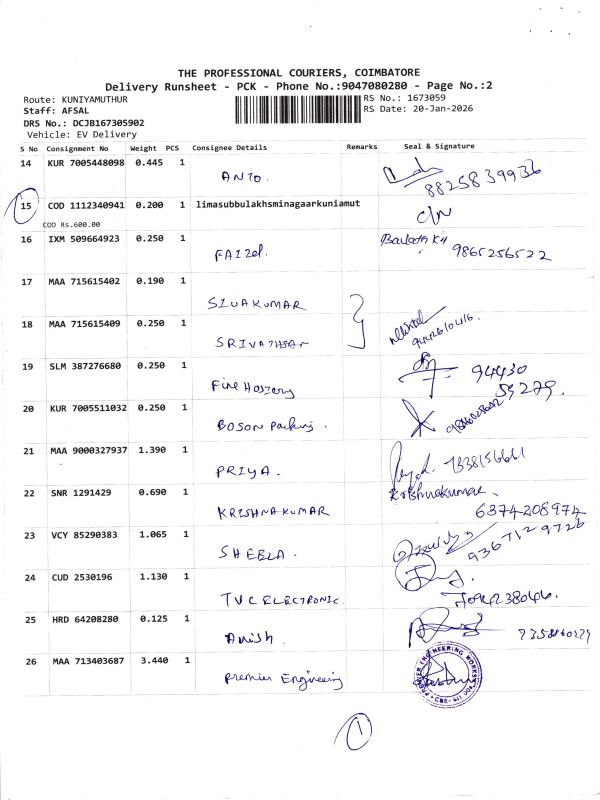 THE PROFESSIONAL COURIERS, COIMBATORE
Delivery Runsheet - PCK - Phone No.:9047080280 - Page No.:2
Route: KUNIYAMUTHUR RS No.: 1673059
Staff: AFSAL RS Date: 20-Jan-2026
DRS No.: DCJB167305902
Vehicle: EV Delivery
S No Consignment No Weight PCS Consignee Details Remarks Seal & Signature
14 KUR 7005448098 0.445 1 ANTO. 8825839936
15 COD 1112340941 0.200 1 limasubbulakhsminagaarkuniamut
COD Rs.600.00
16 IXM 509664923 0.250 1 FAIZel. 9865256522
17 MAA 715615402 0.190 1 SIVAKUMAR
18 MAA 715615409 0.250 1 SRIVATHSAN
19 SLM 387276680 0.250 1 Fine Hosiery 94430
20 KUR 7005511032 0.250 1 BOSON Packing.
21 MAA 9000327937 1.390 1 PRIYA.
22 SNR 1291429 0.690 1 KRISHNAKUMAR Krishnakumar. 6374208974
23 VCY 85290383 1.065 1 SHEELA. 9367129726
24 CUD 2530196 1.130 1 TVC ELECTRONIC.
25 HRD 64208280 0.125 1 Anish.
26 MAA 713403687 3.440 1 Premier Engineering PREMIER ENGINEERING WORKS
1